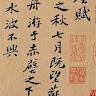 賦
之秋七月既望蘇
舟游于赤壁之下
水波不興